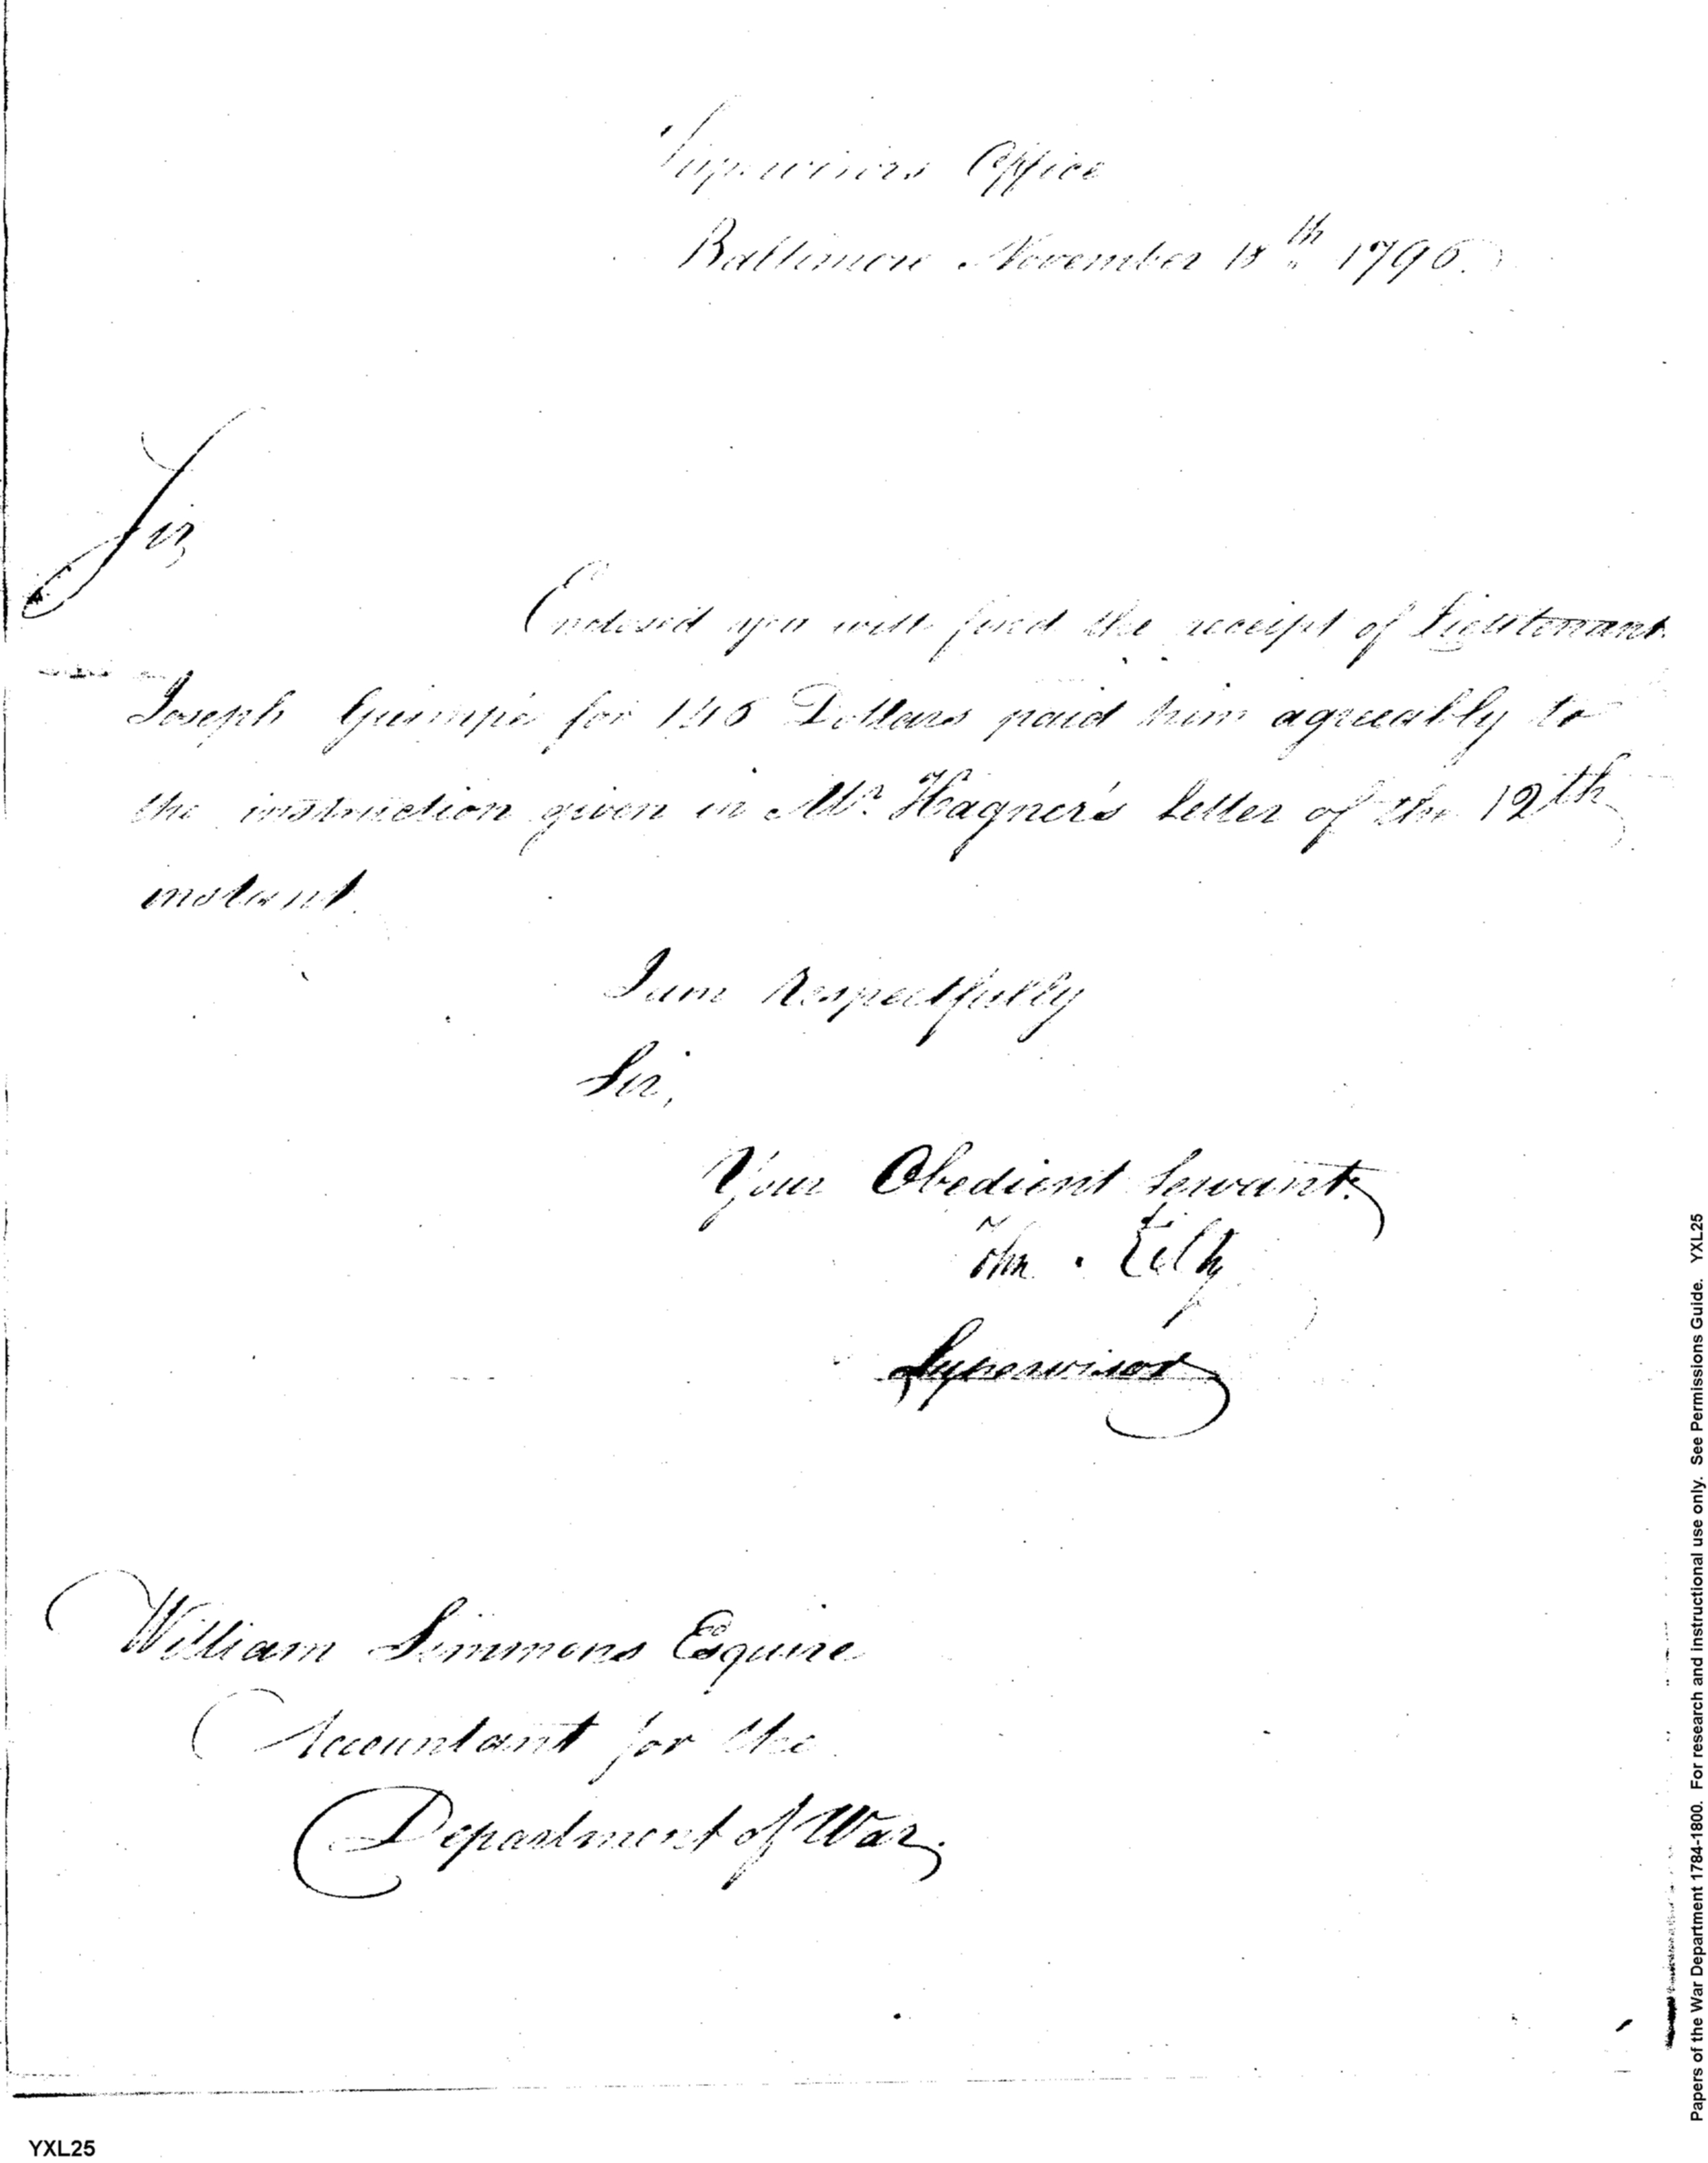 Supervisors Office
Baltimore November 18th 1796.
Sir,
Enclosed you will find the receipt of Lieutenant
Joseph Guimpé for 146 Dollars paid him agreeably to
the instruction given in Mr. Hagner's letter of the 12th
instant.
I am Respectfully
Sir,
Your Obedient Servant.
John Kilty
Supervisor
William Simmons Esquire
Accountant for the
Department of War.
Papers of the War Department 1784-1800. For research and instructional use only. See Permissions Guide. YXL25
YXL25